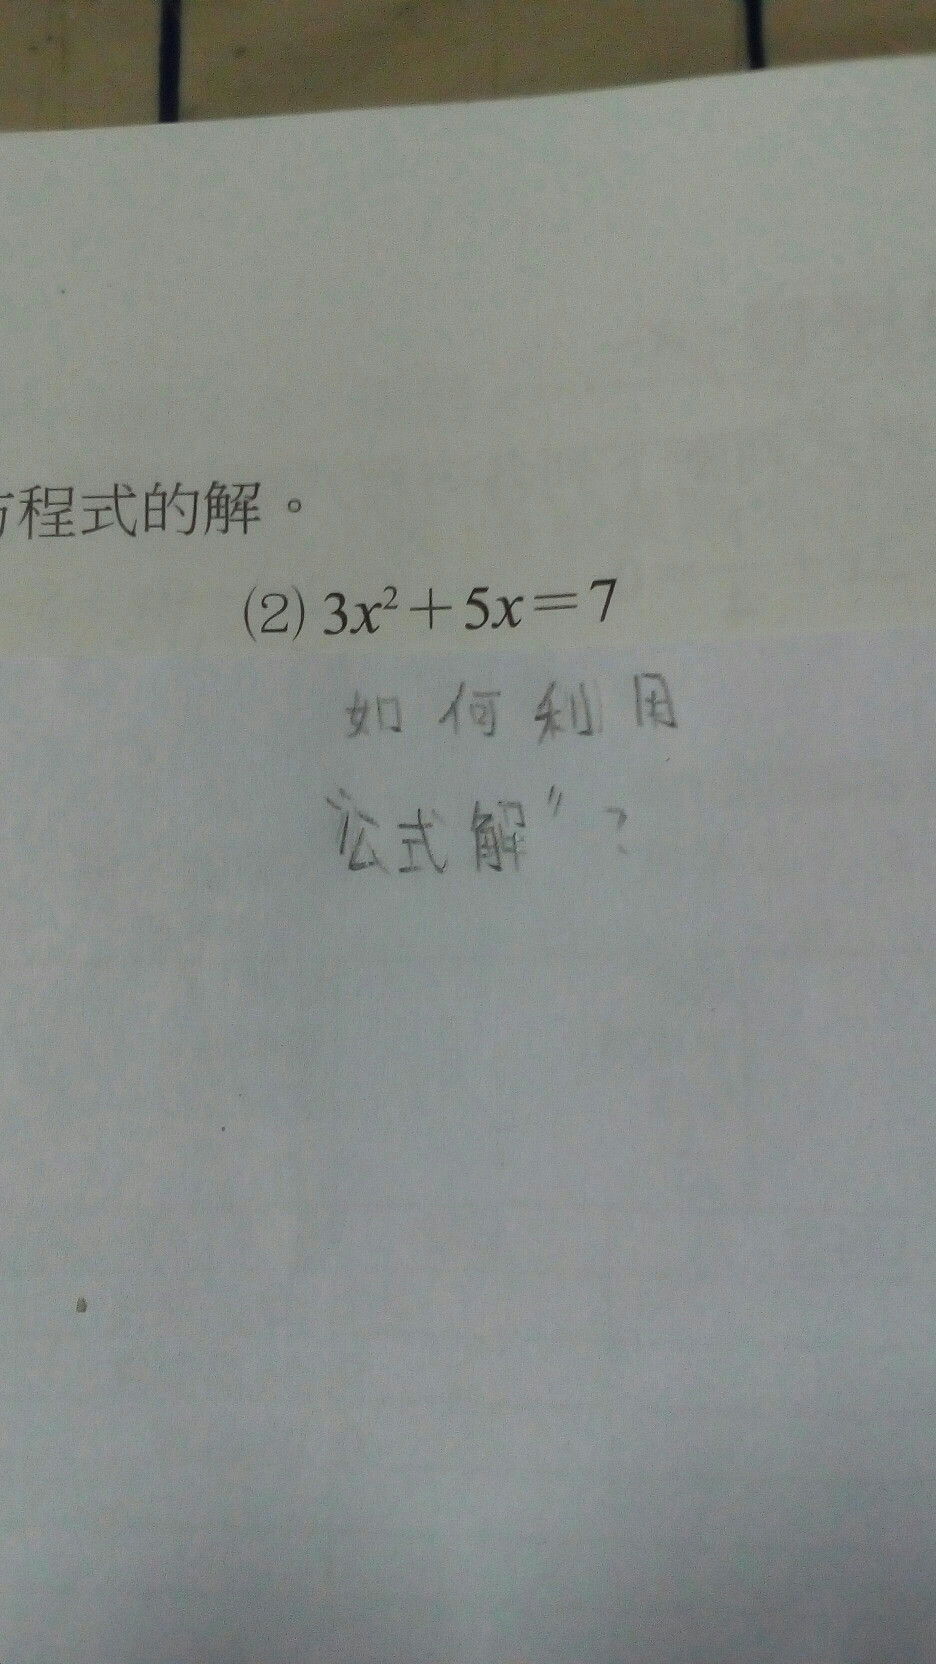 方程式的解。
(2) 3x²+5x=7
如何利用
“公式解”?